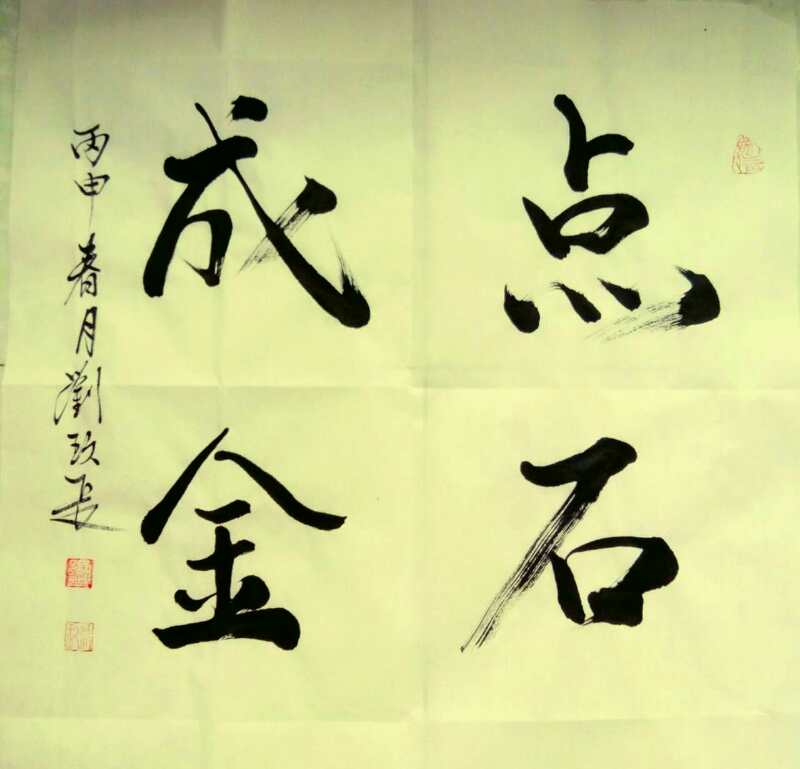 点石
成金
丙申春月劉玫辰